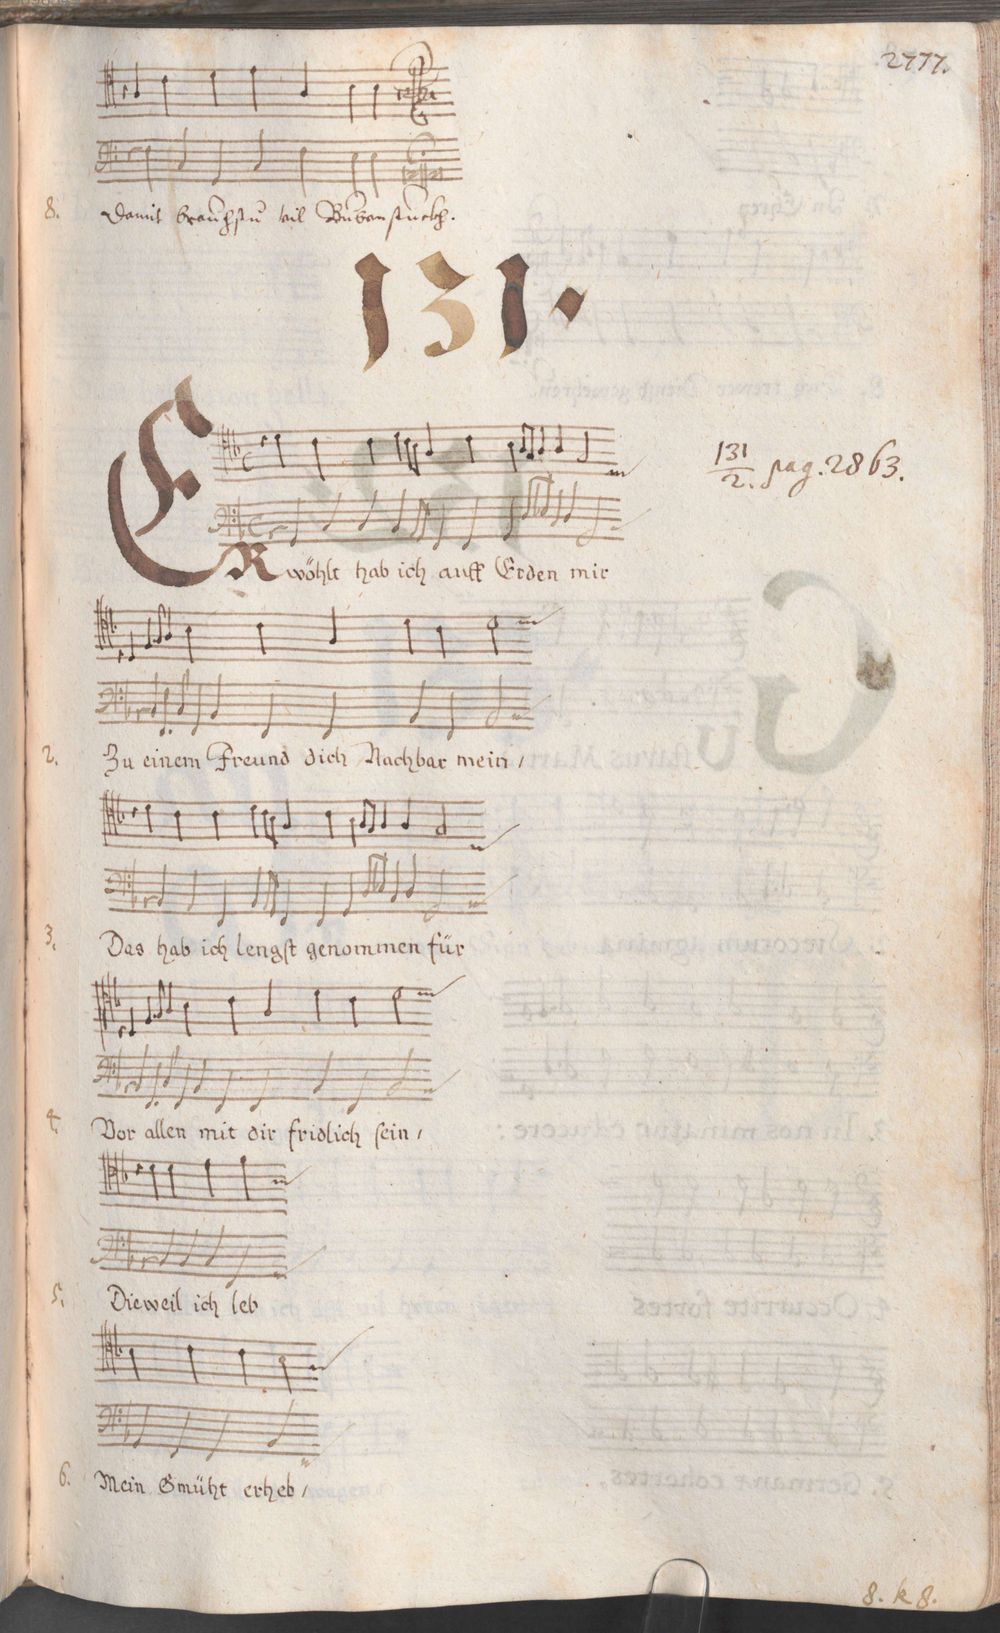 2777.
8. Damit brauchstu vil Bubenstuckh.
131.
131/2. pag. 2863.
ERwöhlt hab ich auff Erden mir
2. Zu einem Freund dich Nachbar mein /
3. Das hab ich lengst genommen für
4. Vor allen mit dir fridlich sein /
5. Dieweil ich leb
6. Mein Gmüht erheb /
8. k 8.